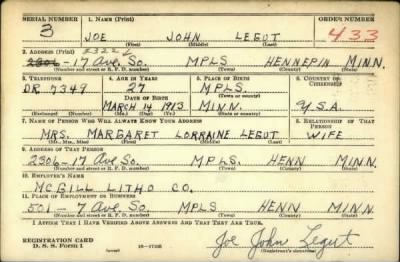 SERIAL NUMBER 1. NAME (Print) ORDER NUMBER
3 JOE JOHN LEGUT 433
(First) (Middle) (Last)
2. ADDRESS (Print) 2322
2306-17 Ave. So. MPLS HENNEPIN MINN.
(Number and street or R. F. D. number) (Town) (County) (State)
3. TELEPHONE 4. AGE IN YEARS 5. PLACE OF BIRTH 6. COUNTRY OF CITIZENSHIP
DR 7349 27 MPLS.
DATE OF BIRTH (Town or county)
MARCH 14 1913 MINN. U.S.A.
(Exchange) (Number) (Mo.) (Day) (Yr.) (State or country)
7. NAME OF PERSON WHO WILL ALWAYS KNOW YOUR ADDRESS 8. RELATIONSHIP OF THAT PERSON
MRS. MARGARET LORRAINE LEGUT WIFE
(Mr., Mrs., Miss) (First) (Middle) (Last)
9. ADDRESS OF THAT PERSON
2306-17 Ave. So. MPLS. HENN MINN.
(Number and street or R. F. D. number) (Town) (County) (State)
10. EMPLOYER'S NAME
MCGILL LITHO CO.
11. PLACE OF EMPLOYMENT OR BUSINESS
501-7 Ave So. MPLS HENN MINN.
(Number and street or R. F. D. number) (Town) (County) (State)
I AFFIRM THAT I HAVE VERIFIED ABOVE ANSWERS AND THAT THEY ARE TRUE.
REGISTRATION CARD
D. S. S. FORM 1 16-17105 Joe John Legut
(Registrant's signature)